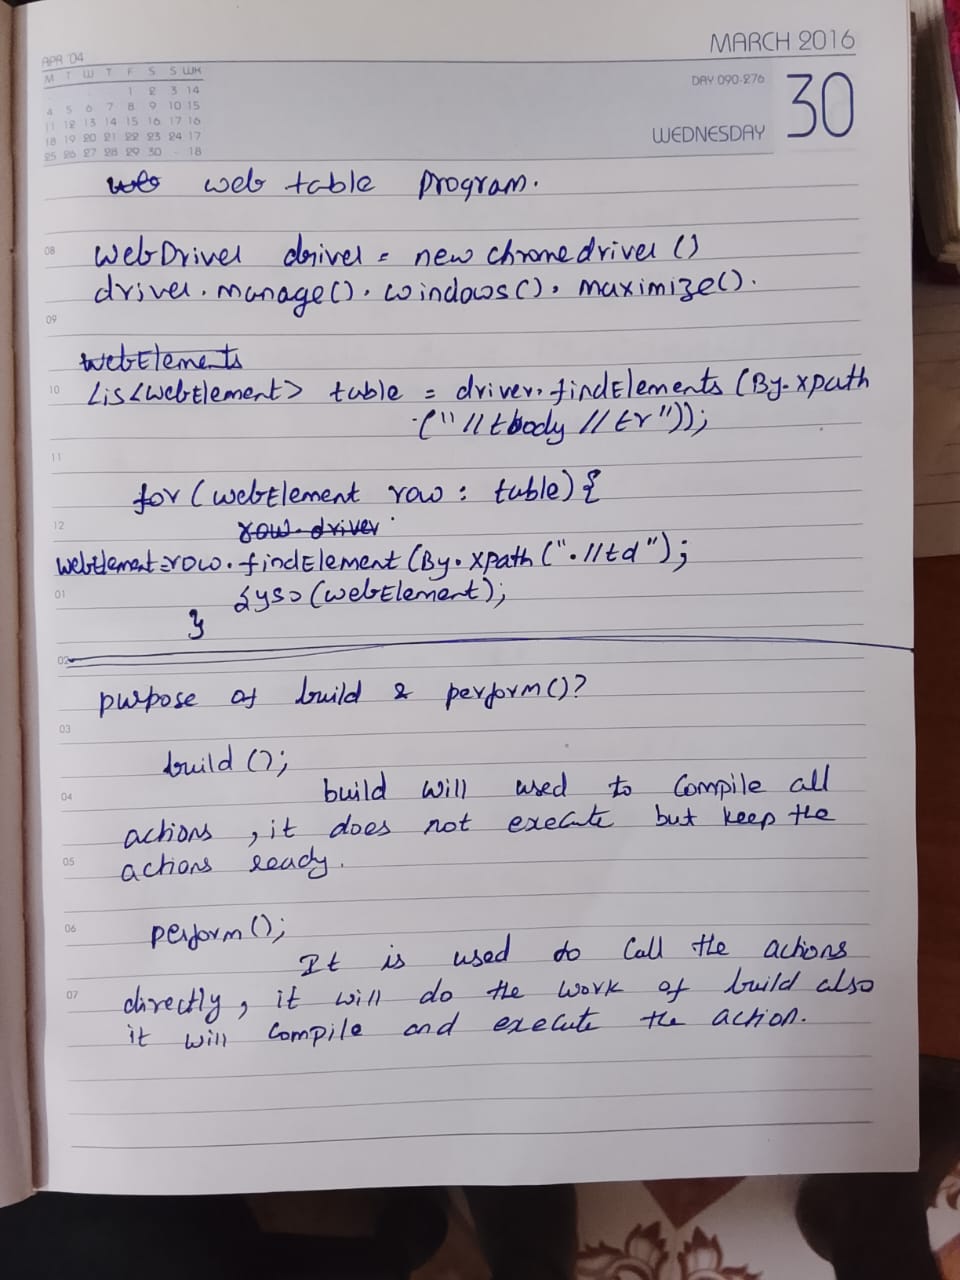 MARCH 2016
APR '04
M T W T F S S WK
1 2 3 14
4 5 6 7 8 9 10 15
11 12 13 14 15 16 17 16
18 19 20 21 22 23 24 17
25 26 27 28 29 30 - 18
DAY 090-276
30
WEDNESDAY
web web table program.
08
WebDriver driver = new chromedriver ()
driver.manage().windows().maximize().
09
webElements
10
Lis<WebElement> table = driver.findElements (By.xpath
("//tbody//tr"));
11
for (webElement row : table) {
12
row.driver
webElement=row.findElement (By.xpath (".//td");
01
Syso (webElement);
}
02
purpose of build & perform()?
03
build ();
04
build will used to compile all
actions , it does not execute but keep the
05
actions ready.
06
perform();
It is used to call the actions
07
directly, it will do the work of build also
it will compile and execute the action.